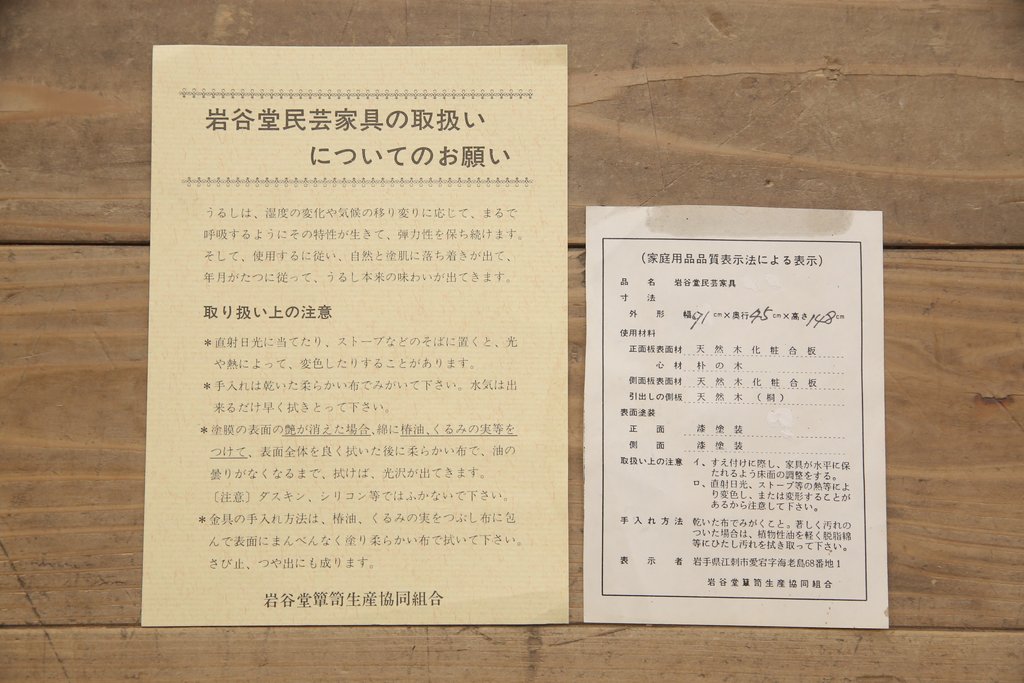 岩谷堂民芸家具の取扱い
についてのお願い
うるしは、湿度の変化や気候の移り変りに応じて、まるで
呼吸するようにその特性が生きて、弾力性を保ち続けます。
そして、使用するに従い、自然と塗肌に落ち着きが出て、
年月がたつに従って、うるし本来の味わいが出てきます。
取り扱い上の注意
*直射日光に当てたり、ストーブなどのそばに置くと、光
や熱によって、変色したりすることがあります。
*手入れは乾いた柔らかい布でみがいて下さい。水気は出
来るだけ早く拭きとって下さい。
*塗膜の表面の艶が消えた場合、綿に椿油、くるみの実等を
つけて、表面全体を良く拭いた後に柔らかい布で、油の
曇りがなくなるまで、拭けば、光沢が出てきます。
〔注意〕ダスキン、シリコン等ではふかないで下さい。
*金具の手入れ方法は、椿油、くるみの実をつぶし布に包
んで表面にまんべんなく塗り柔らかい布で拭いて下さい。
さび止、つや出にも成ります。
岩谷堂簞笥生産協同組合
(家庭用品品質表示法による表示)
品名 岩谷堂民芸家具
寸法
外形 幅91cm×奥行45cm×高さ148cm
使用材料
正面板表面材 天然木化粧合板
心材 朴の木
側面板表面材 天然木化粧合板
引出しの側板 天然木(桐)
表面塗装
正面 漆塗装
側面 漆塗装
取扱い上の注意 イ、すえ付けに際し、家具が水平に保
たれるよう床面の調整をする。
ロ、直射日光、ストーブ等の熱等によ
り変色し、または変形することが
あるから注意して下さい。
手入れ方法 乾いた布でみがくこと。著しく汚れの
ついた場合は、植物性油を軽く脱脂綿
等にひたし汚れを拭き取って下さい。
表示者 岩手県江刺市愛宕字海老島68番地1
岩谷堂簞笥生産協同組合